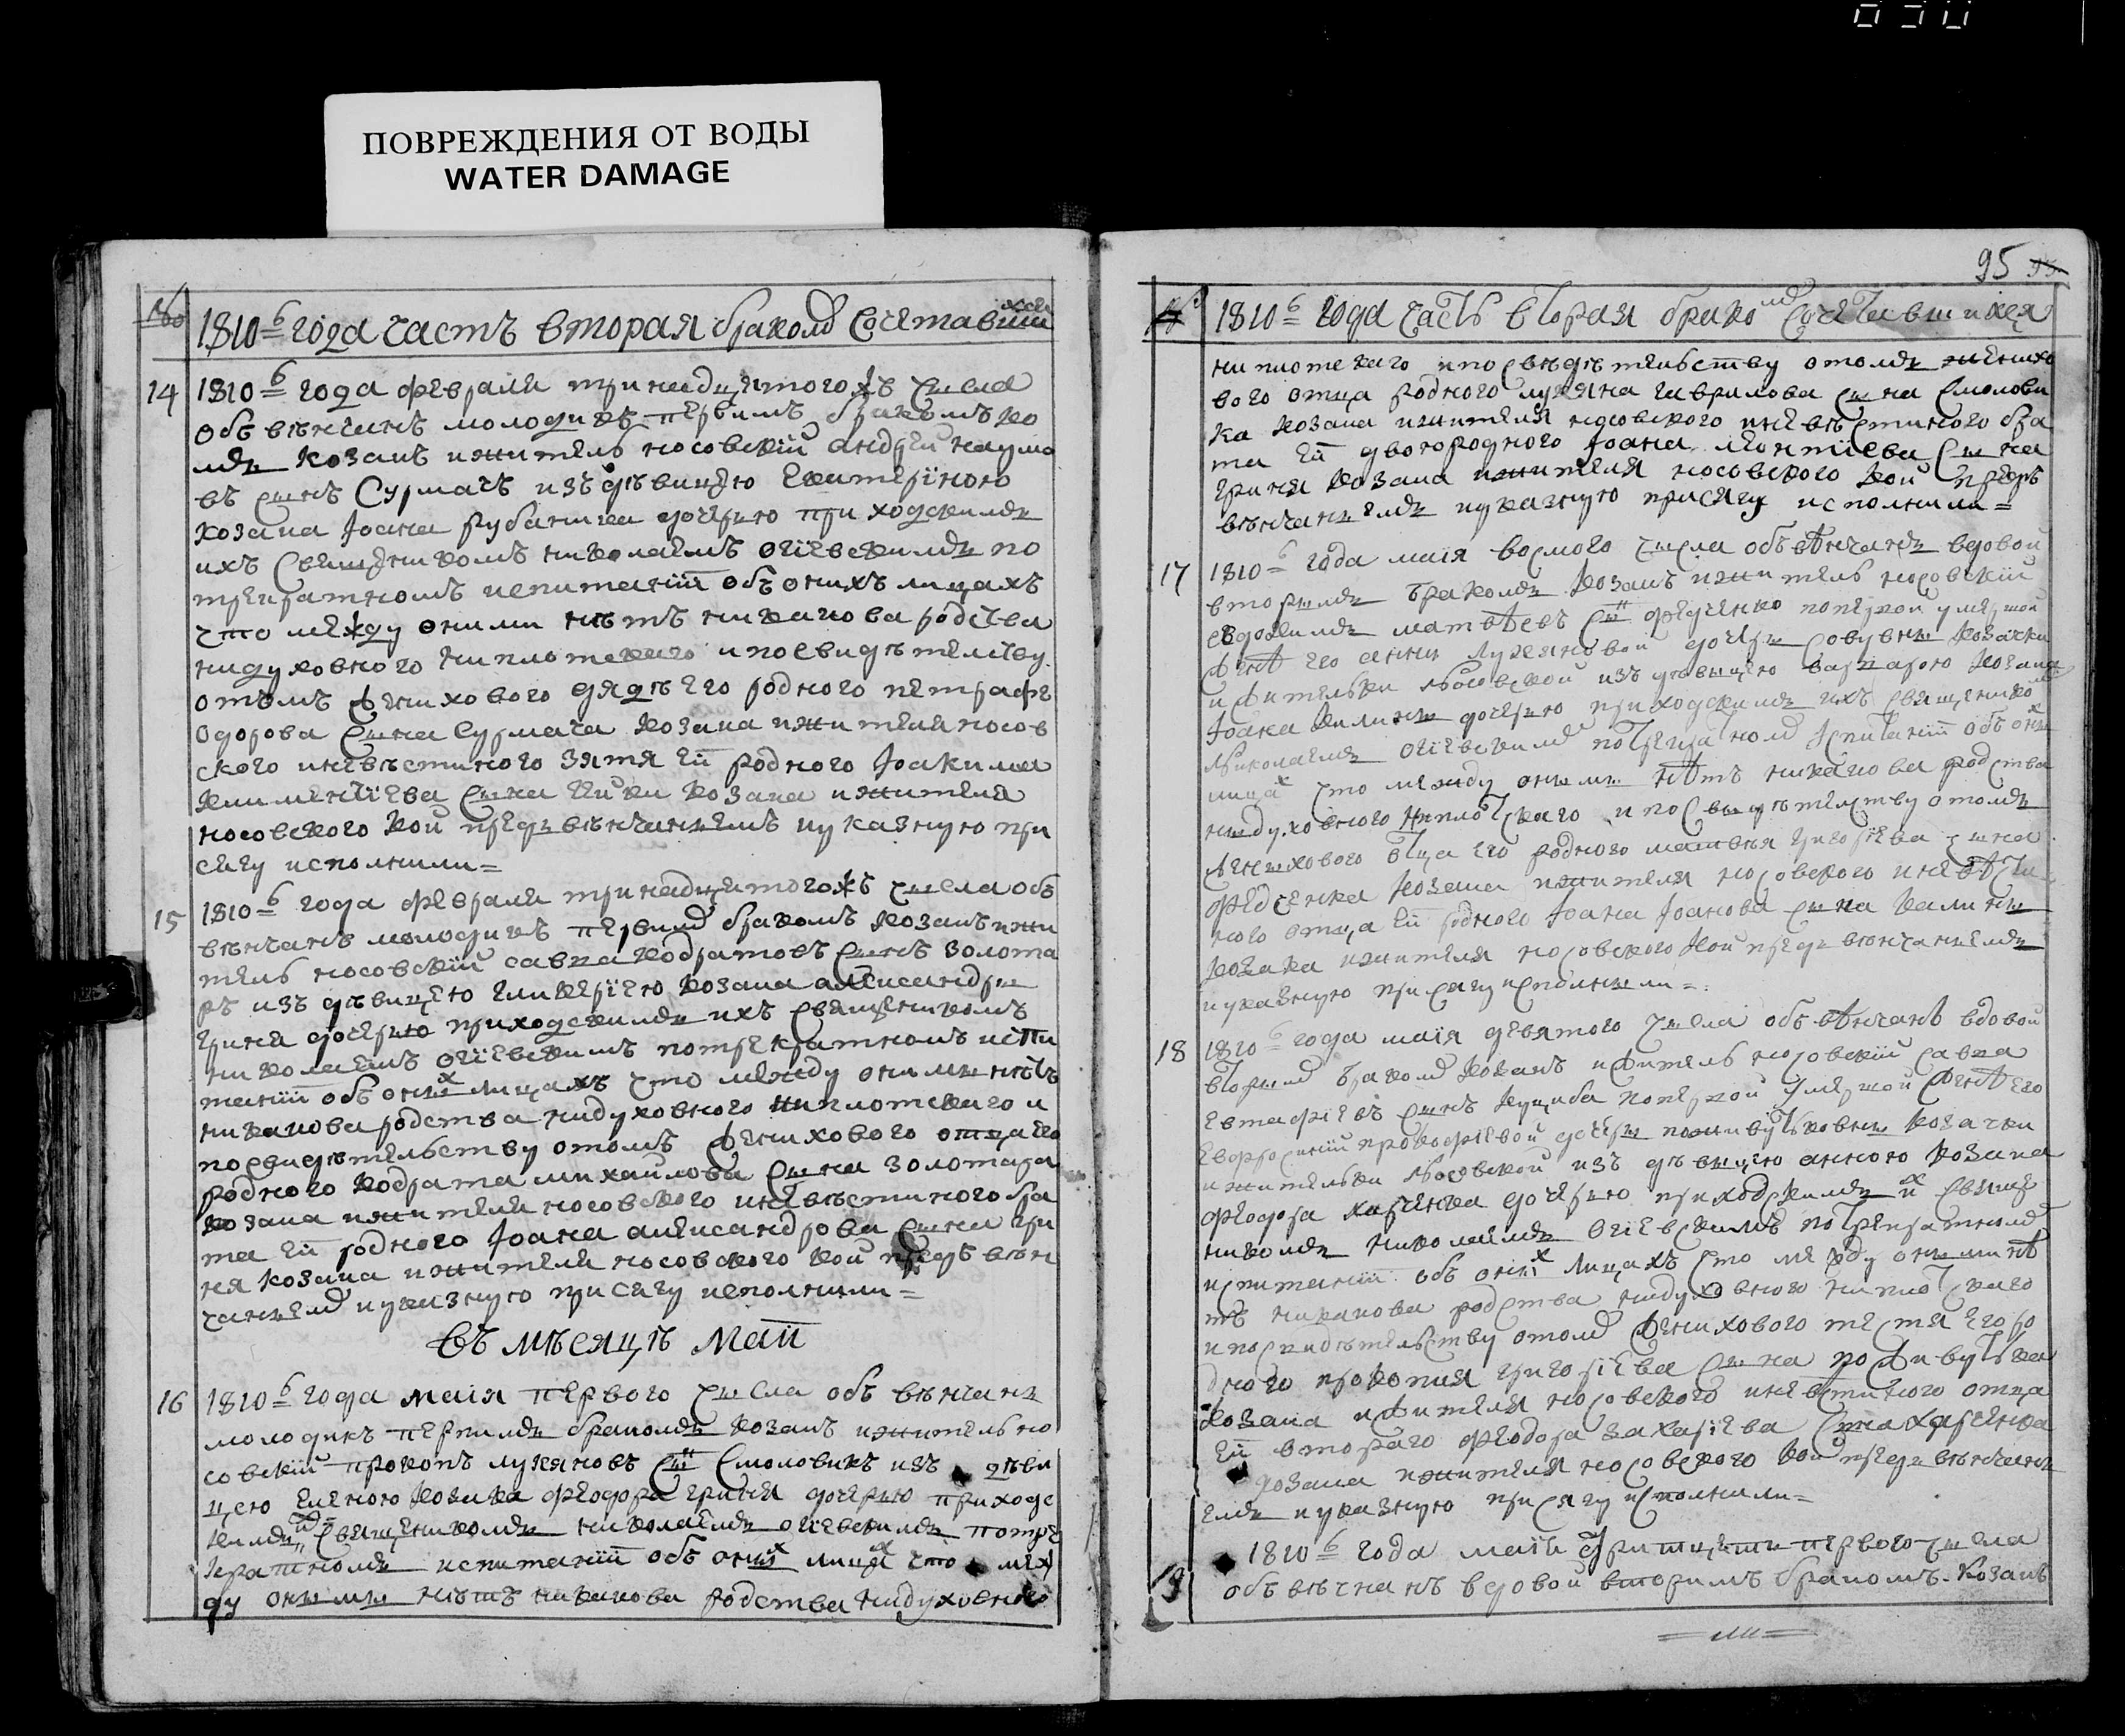 ПОВРЕЖДЕНИЯ ОТ ВОДЫ
WATER DAMAGE
95
№
1810=б года частъ вторая бракомъ сочетавшихся
14
1810=б года февраля тринадцятогожъ числа
обвѣнчанъ молодикъ первимъ бракомъ но
мъ козакъ ижитель носовскій андрей наумо
въ сынъ Сурмачъ изъ дѣвицею Екатериною
козака Іоана рубаника дочерью приходскимъ
ихъ священикомъ николаемъ огіевскимъ по
трикратномъ испитаніи объ онихъ лицахъ
что между оними нѣтъ никакова родства
нидуховного ниплотскаго ипосвидѣтелству
отомъ женихового дядѣ его родного петра фе
одорова сына сурмача козака ижителя носов
ского иневѣстиного зятя ей родного Іоакима
климентіева сына козака ижителя
носовского кои предъ вѣнчаниемъ иуказную при
сягу исполнили=
15
1810=б года февраля тринадцятогожъ числа объ
вѣнчанъ молодикъ первимъ бракомъ козакъ ижи
тель носовскій савка кодратовъ сынъ золота
ръ изъ дѣвицею гликеріею козака александры
гриня дочерью приходскимъ ихъ священикомъ
николаемъ огіевскимъ потрекратномъ испи
таніи объ онихъ лицахъ что между оними нѣтъ
никакова родства нидуховного ниплотскаго и
посвидѣтельству отомъ женихового отца его
родного кодрата михайлова сына золотара
козака ижителя носовского иневѣстиного бра
та ей родного Іоана александрова сына гри
ня козака ижителя носовского кои предъ вѣн
чаниемъ иуказную присягу исполнили=
въ мѣсяцѣ маи
16
1810=б года маія первого числа объ вѣнчанъ
молодикъ первимъ бракомъ козакъ ижитель но
совскій прокопъ лукяновъ сынъ Смоловикъ изъ дѣви
цею еленою козака феодора гриня дочерью приходс
кимъ ихъ священикомъ николаемъ огіевскимъ потре
кратномъ испитаніи объ онихъ лицахъ что меж
ду оними нѣтъ никакова родства нидуховного
1810=б года часть вторая бракомъ сочетавшихся
ниплотскаго ипосвѣдѣтельству отомъ женихо
вого отца родного лукяна гаврилова сына смолови
ка козака ижителя носовского иневѣстиного бра
та ей двоюродного Іоана леонтіева сына
гриня козака ижителя носовского кои предъ
вѣнчаниемъ иуказную присягу исполнили=
17
1810=б года маія восмого числа объвѣнчанъ вдовой
вторымъ бракомъ козакъ ижитель носовскій
евдокимъ матвѣевъ сынъ федченко попервой умершой
женѣ его анни лукяновой дочери козачки
ижительки носовской изъ дѣвицею варварою козака
Іоана калини дочерью приходскимъ ихъ священикомъ
николаемъ огіевскимъ потрекратномъ испитаніи объ онихъ
лицахъ что между оними нѣтъ никакова родства
нидуховного ниплотскаго ипосвидѣтелству отомъ
женихового отца его родного матвѣя григоріева сына
федченка козака ижителя носовского иневѣсти
ного отца ей родного Іоана Іоанова сына калини
козака ижителя носовского кои предъ вѣнчаниемъ
иуказную присягу исполнили=
18
1810=б года маія девятого числа объвѣнчанъ вдовой
вторимъ бракомъ козакъ ижитель носовскій савка
евтафіевъ сынъ куциба попервой умершой женѣ его
прокофіевой дочери козачки
ижительки носовской изъ дѣвицею анною козака
феодора харченка дочерью приходскимъ ихъ свяще
никомъ николаемъ огіевскимъ потрекратномъ
испитаніи объ онихъ лицахъ что между оними нѣ
тъ никакова родства нидуховного ниплотскаго
ипосвидѣтельству отомъ женихового тестя его ро
дного прокопия григоріева сына
козака ижителя носовского иневѣстиного отца
ей втораго феодора захаріева сына харченка
козака ижителя носовского кои предъ вѣнчани
емъ иуказную присягу исполнили=
19
1810=б года маія тритцяти первого числа
объвѣнчанъ вдовой вторимъ бракомъ козакъ